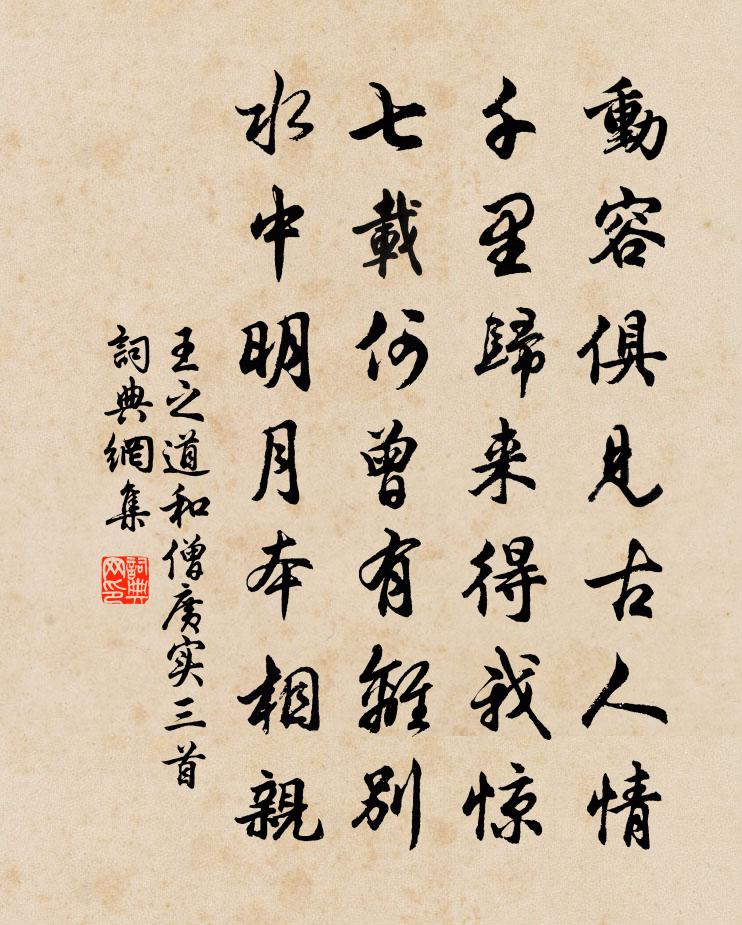 動容俱見古人情
千里歸来得我惊
七載何曾有離別
水中明月本相親
王之道和僧廣实三首
詞典網集
詞典网印